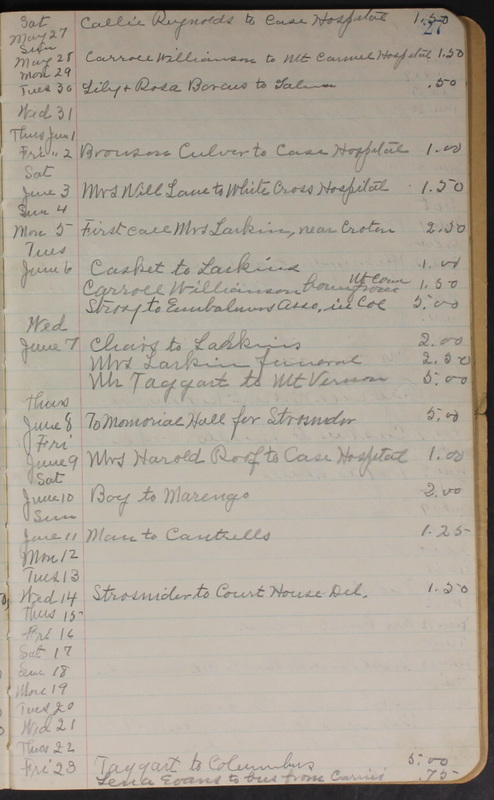 27
Sat May 27 Callie Reynolds to Case Hospital 1.50
Sun May 28 Carroll Williamson to Mt Carmel Hospital 1.50
Mon 29
Tues 30 Lily & Rosa to .50
Wed 31
Thus Jun 1
Fri " 2 Bronson Culver to Case Hospital 1.00
Sat June 3 Mrs Will Lane to White Cross Hospital 1.50
Sun 4
Mon 5 First call Mrs Larkin, near Croton 2.50
Tues June 6 Casket to Larkins 1.00
Carroll Williamson home from Mt Carm 1.50
Stros to Embalmers Asso, in Col 5.00
Wed June 7 Chairs to Larkins 2.00
Mrs Larkin funeral 2.50
Mr Taggart to Mt Vernon 5.00
Thurs June 8 To Memorial Hall for Strosnider 5.00
Fri June 9 Mrs Harold Roof to Case Hospital 1.00
Sat June 10 Boy to Marengo 2.00
Sun June 11 Man to Cantrells 1.25
Mon 12
Tues 13
Wed 14 Strosnider to Court House Del. 1.50
Thus 15
Fri 16
Sat 17
Sun 18
Mon 19
Tues 20
Wed 21
Thus 22
Fri 23 Taggart to Columbus 5.00
Lena Evans to bus from 75